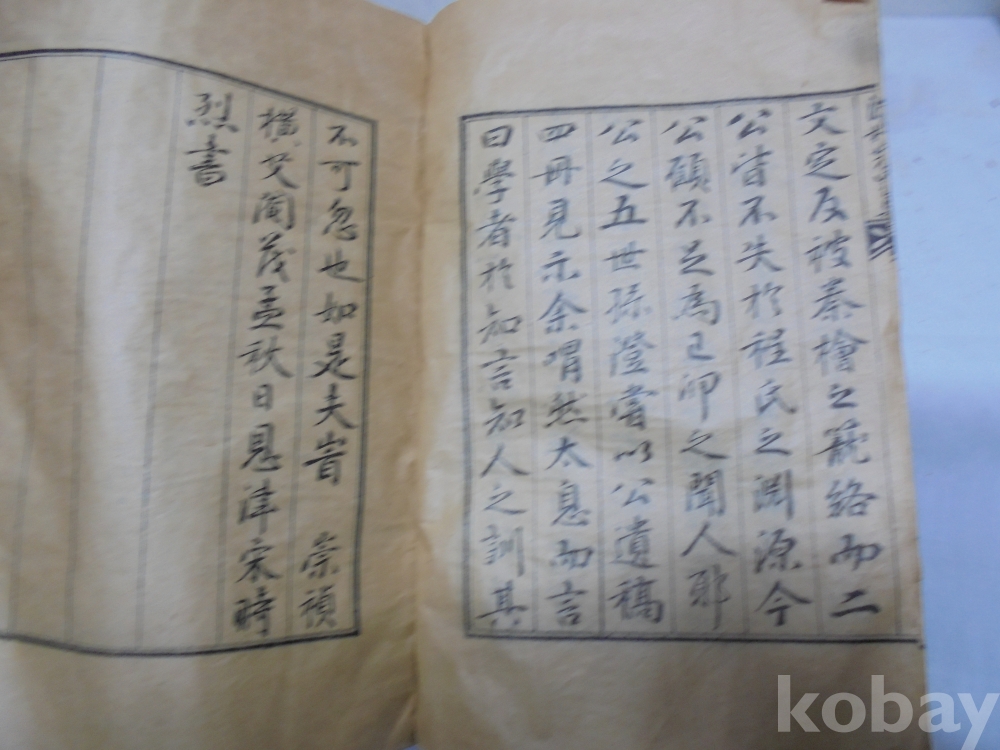 文定反被秦檜之籠絡而二
公皆不失於程氏之淵源今
公顧不足爲己卯之聞人耶
公之五世孫澄嘗以公遺稿
四冊見示余喟然太息而言
曰學者於知言知人之訓其
不可忽也如是夫旹 崇禎
橫艾閹茂孟秋日恩津宋時
烈書
kobay